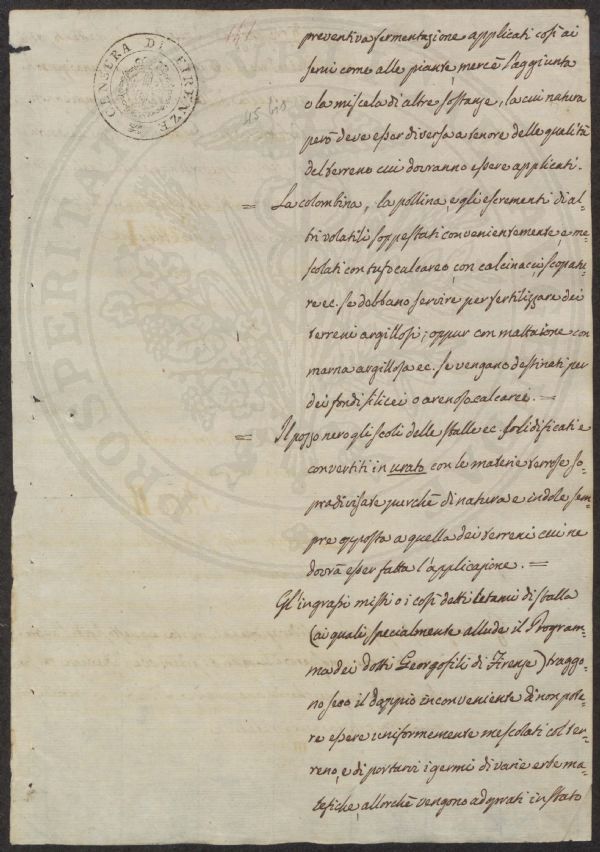 CENSURA DI FIRENZE
151
45 bis
PROSPERITA
preventiva fermentazione applicati così ai
semi come alle piante, mercè l'aggiunta
o la miscela di altre sostanze, la cui natura
però deve esser diversa a tenore delle qualità
del terreno cui dovranno essere applicati.
= La colombina, la pollina, e gli escrementi di al-
tri volatili soppestati convenientemente, e me-
scolati con tufo calcareo, con calcinacci, scopatu-
re ec. se debbano servire per fertilizzare dei
terreni argillosi; oppur con mattaione con
marna argillosa ec. se vengano destinati per
dei fondi silicei o arenoso calcarei. =
= Il pozzo nero gli scoli delle stalle ec. solidificati e
convertiti in urato con le materie terrose so-
pradivisate purchè di natura e indole sem-
pre opposta a quella dei terreni cui ne
dovrà esser fatta l'applicazione. =
Gl'ingrassi misti o i così detti letami di stalla
(ai quali specialmente allude il Program-
ma dei dotti Georgofili di Firenze) traggo-
no seco il doppio inconveniente di non pote-
re essere uniformemente mescolati col ter-
reno, e di portarvi i germi di varie erbe ma-
lefiche, allorchè vengono adoprati in stato